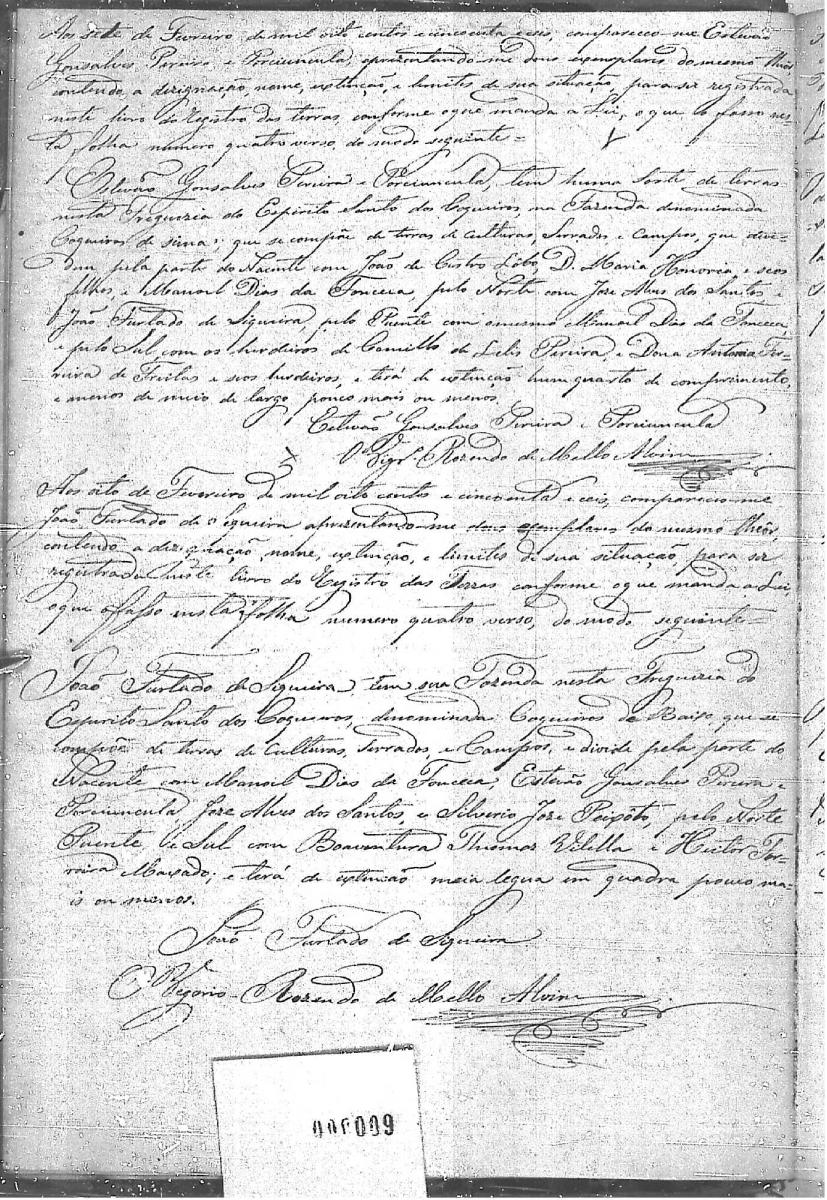 Aos sete de Fevreiro de mil oito centos e cincoenta e ceis, compareceo-me Estevão
Gonsalves Pereira e Porciuncula, aprezentando-me dous exemplares do mesmo theôr,
contendo a dezignação, nome, extinção, e limites de sua situação, para ser registrada
neste livro do Registro das terras, conforme oque manda a Lei, o que o fasso nes-
ta folha numero quatro verso, do modo seguinte =
Estevão Gonsalves Pereira e Porciuncula, tem huma sorte de terras
nesta Freguezia do Espirito Santo dos Coqueiros, na Fazenda denominada
Coqueiros de sima; que se compõe de terras de culturas, Serrados, e Campos, que divi-
dem pela parte do Nacente com João de Castro Lobo, D. Maria Honoria, e seos
filhos, e Manoel Dias da Fonceca, pelo Norte com Jose Alves dos Santos e
João Furtado de Siqueira, pelo Puente com o mesmo Manoel Dias da Fonceca,
e pelo Sul, com os herdeiros de Camillo de Lelis Pereira, e Dona Antonia Fer-
reira de Freitas e seos herdeiros, e terá de extinção hum quarto de comprimento,
e menos de meio de largo, pouco mais ou menos.
Estevão Gonsalves Pereira e Porciuncula
O Vigr.º Rozendo de Mello Alvim
Aos oito de Fevereiro de mil oito centos e cincoenta e ceis, compareceo-me
João Furtado de Siqueira, aprezentando-me dous exemplares do mesmo theôr,
contendo a dezignação, nome, extinção, e limites de sua situação, para ser
registrada neste livro do Registro das Terras conforme oque manda a Lei,
oque o fasso nesta folha numero quatro verso, do modo seguinte =
João Furtado de Siqueira, tem sua Fazenda nesta Freguezia do
Espirito Santo dos Coqueiros, denominada Coqueiros de Baixo, que se
compõe de terras de Culturas, Serrados, e Campos, e divide pela parte do
Nacente com Manoel Dias da Fonceca, Estevão Gonsalves Pereira e
Porciuncula, Jose Alves dos Santos, e Silverio Jose Peixôto, pelo Norte
Puente, e Sul com Boaventura Thomas Vilella e Heitor Fer-
reira Maxado; e terá de extinção meia legua em quadra pouco ma-
is ou menos.
João Furtado de Siqueira
O Vigario Rozendo de Mello Alvim
000009